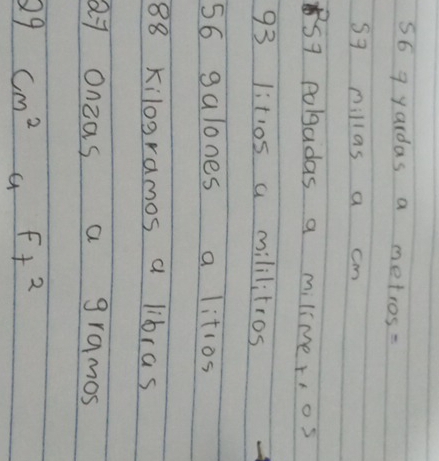 569 yardas a metros=
59 millas a cm
859 pulgadas a milimetros
93 litros a mililitros
56 galones a litros
88 Kilogramos a libras
27 onzas a gramos
29 cm² a ft²